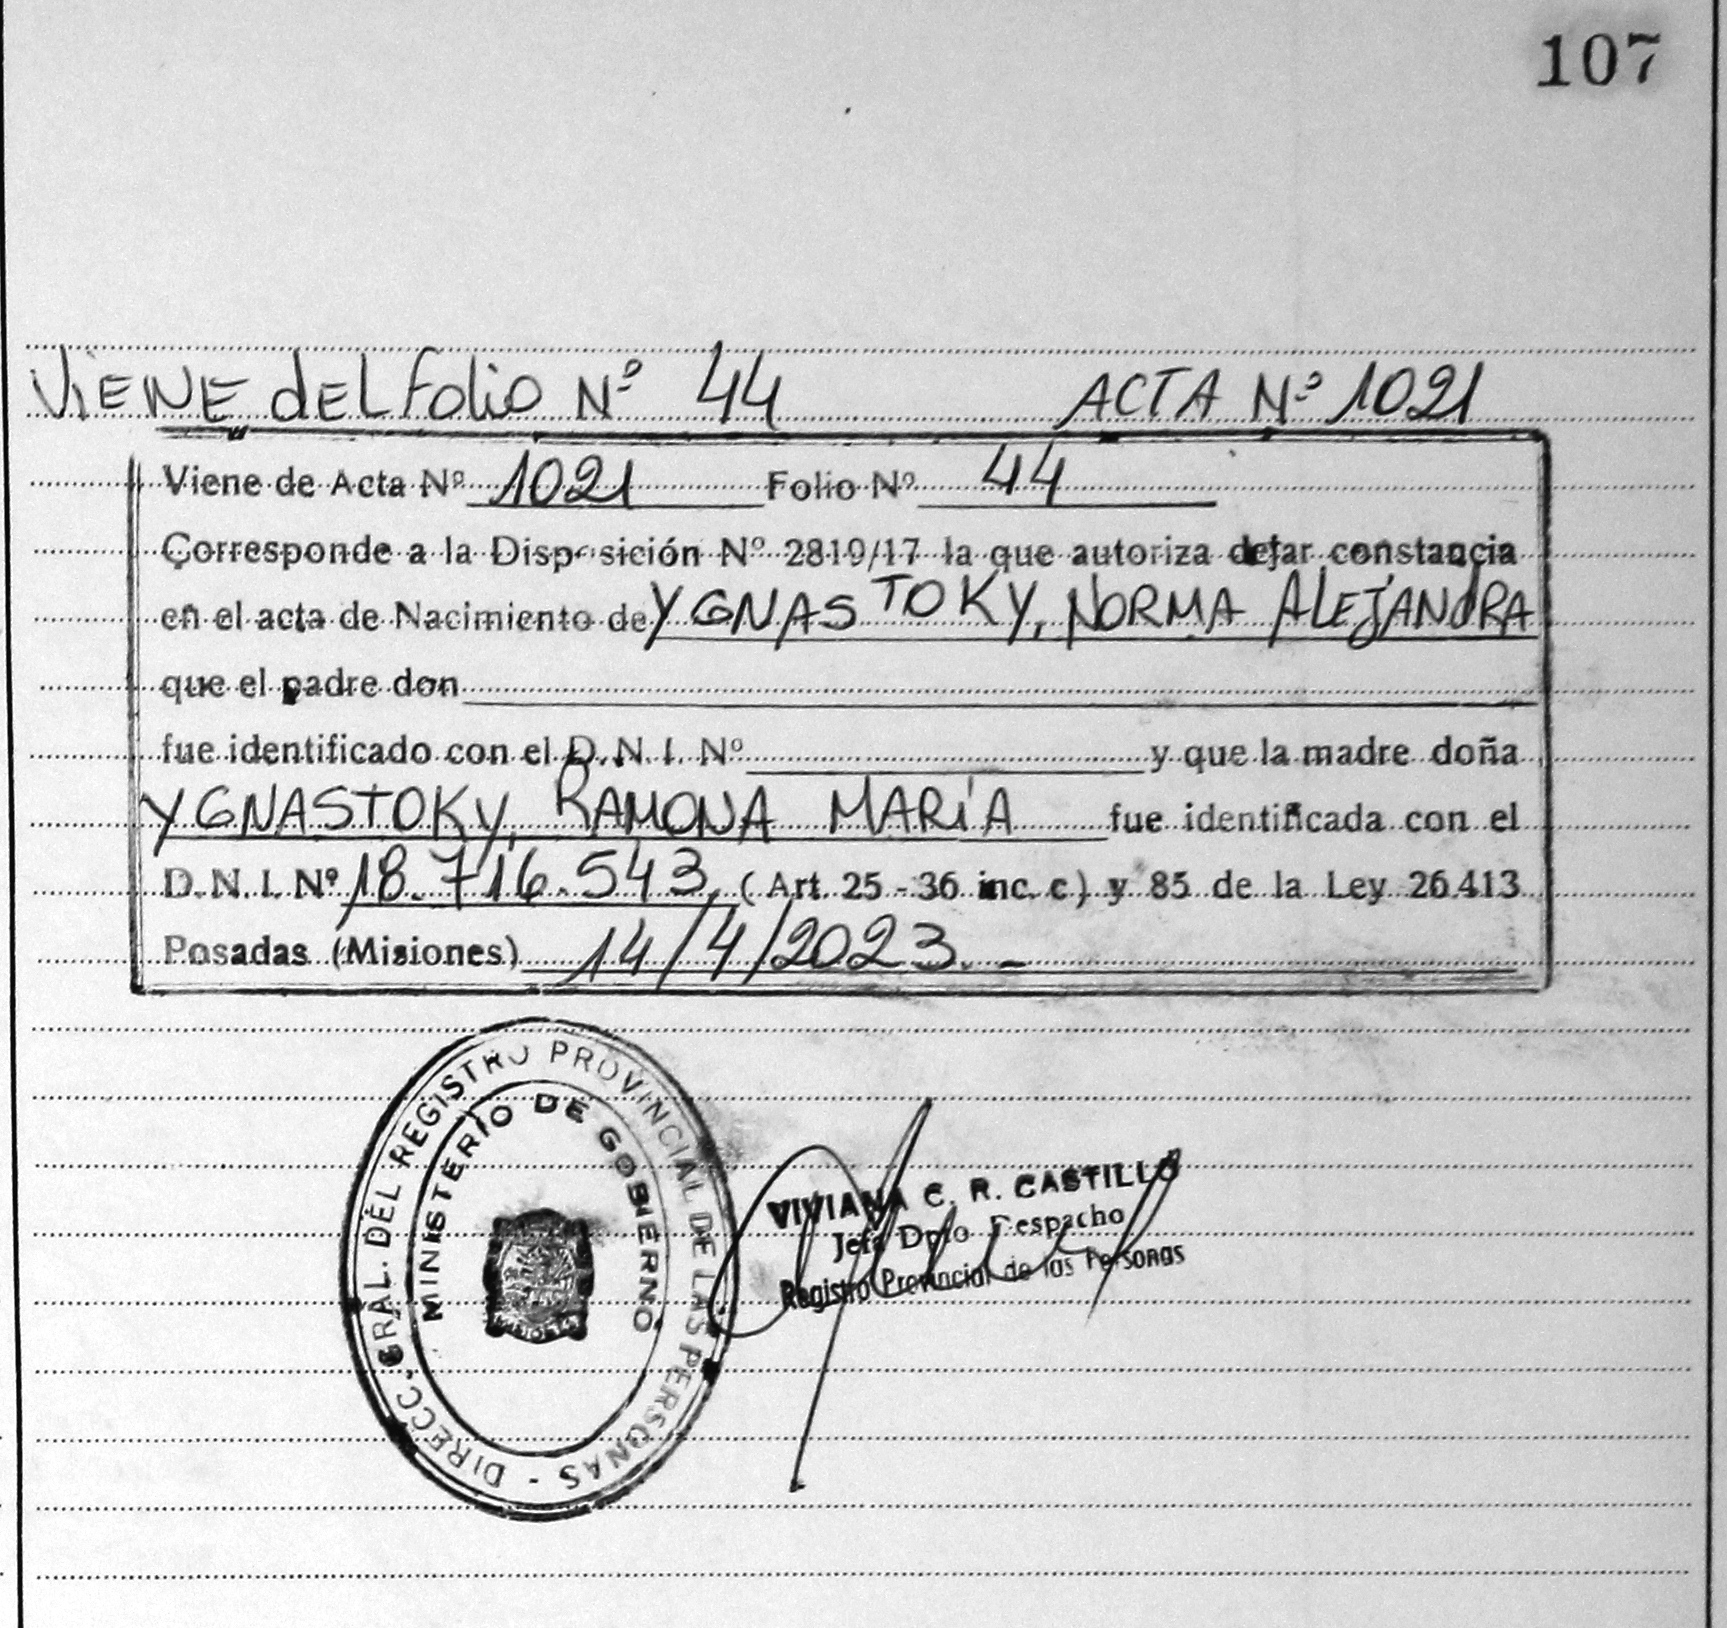 107
Viene del Folio Nº 44 ACTA Nº 1021
Viene de Acta Nº 1021 Folio Nº 44
Corresponde a la Disposición Nº 2819/17 la que autoriza dejar constancia
en el acta de Nacimiento de YGNASTOKY, NORMA ALEJANDRA
que el padre don
fue identificado con el D.N.I. Nº y que la madre doña
YGNASTOKY, RAMONA MARÍA fue identificada con el
D.N.I. Nº 18.716.543, (Art. 25 - 36 inc. c) y 85 de la Ley 26.413
Posadas (Misiones) 14/4/2023.-
DIRECC. GRAL. DEL REGISTRO PROVINCIAL DE LAS PERSONAS -
MINISTERIO DE GOBIERNO
VIVIANA C. R. CASTILLO
Jefa Dpto Despacho
Registro Provincial de las Personas